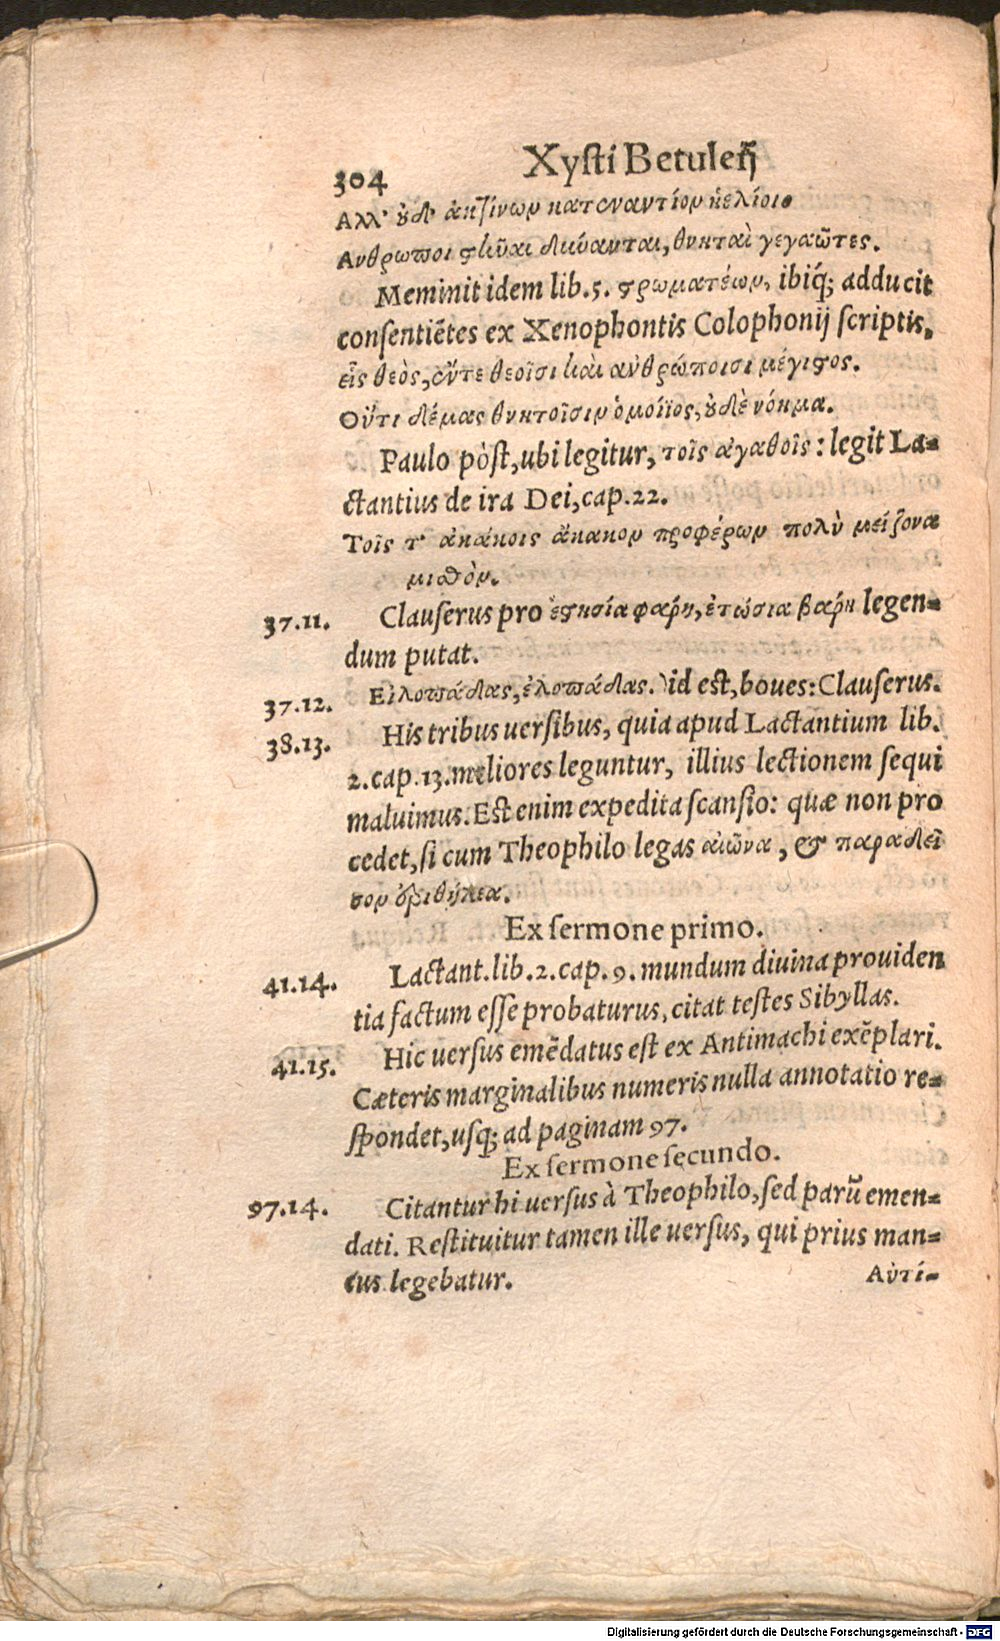 304 Xysti Betuleĳ
Αλλ' ȣδ' ἀκτίνωρ κατεναντίον ἠελίοιο
Ανθρωποι ςῆναι δύνανται, θνηταὶ γεγαῶτες.
Meminit idem lib.5. ςρωματέων, ibiq́; adducit
consentiẽtes ex Xenophontis Colophonij scriptis.
εἷς θεὸς, ἔν τε θεοῖσι καὶ ἀνθρώποισι μέγιςος.
Οὔτι δέμας θνητοῖσιν ὁμοίϊος, ȣδὲ νόημα.
Paulo pòst, ubi legitur, τοῖς ἀγαθοῖς: legit La-
ctantius de ira Dei, cap.22.
Τοῖς τ' ἀκάκοις ἄκακον προφέρων πολὺ μείζονα
μισθὸν.
37.11. Clauserus pro ἐτησία φαρη, ἐτώσια βαρη legen-
dum putat.
37.12. Εἰλοπάδας, ἐλοπάδας. id est, boues: Clauserus.
38.13. His tribus uersibus, quia apud Lactantium lib.
2.cap.13.meliores leguntur, illius lectionem sequi
maluimus. Est enim expedita scansio: quæ non pro
cedet, si cum Theophilo legas αἰῶνα, & παραδεί
σον ἐριθηλέα.
Ex sermone primo.
41.14. Lactant.lib.2.cap.9. mundum diuina prouiden
tia factum esse probaturus, citat testes Sibyllas.
41.15. Hic uersus emẽdatus est ex Antimachi exẽplari.
Cæteris marginalibus numeris nulla annotatio re-
spondet, usq́; ad paginam 97.
Ex sermone secundo.
97.14. Citantur hi uersus à Theophilo, sed parũ emen-
dati. Restituitur tamen ille uersus, qui prius man-
cus legebatur. Αὐτί-
Digitalisierung gefördert durch die Deutsche Forschungsgemeinschaft - DFG